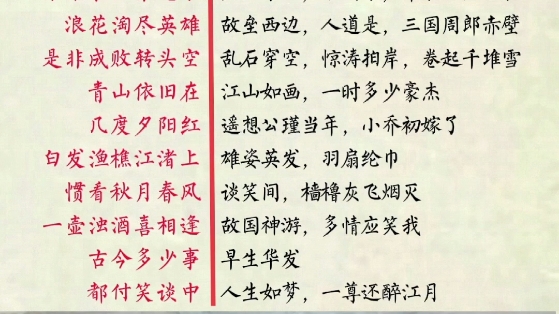 浪花淘尽英雄
是非成败转头空
青山依旧在
几度夕阳红
白发渔樵江渚上
惯看秋月春风
一壶浊酒喜相逢
古今多少事
都付笑谈中
故垒西边，人道是，三国周郎赤壁
乱石穿空，惊涛拍岸，卷起千堆雪
江山如画，一时多少豪杰
遥想公瑾当年，小乔初嫁了
雄姿英发，羽扇纶巾
谈笑间，樯橹灰飞烟灭
故国神游，多情应笑我
早生华发
人生如梦，一尊还酹江月